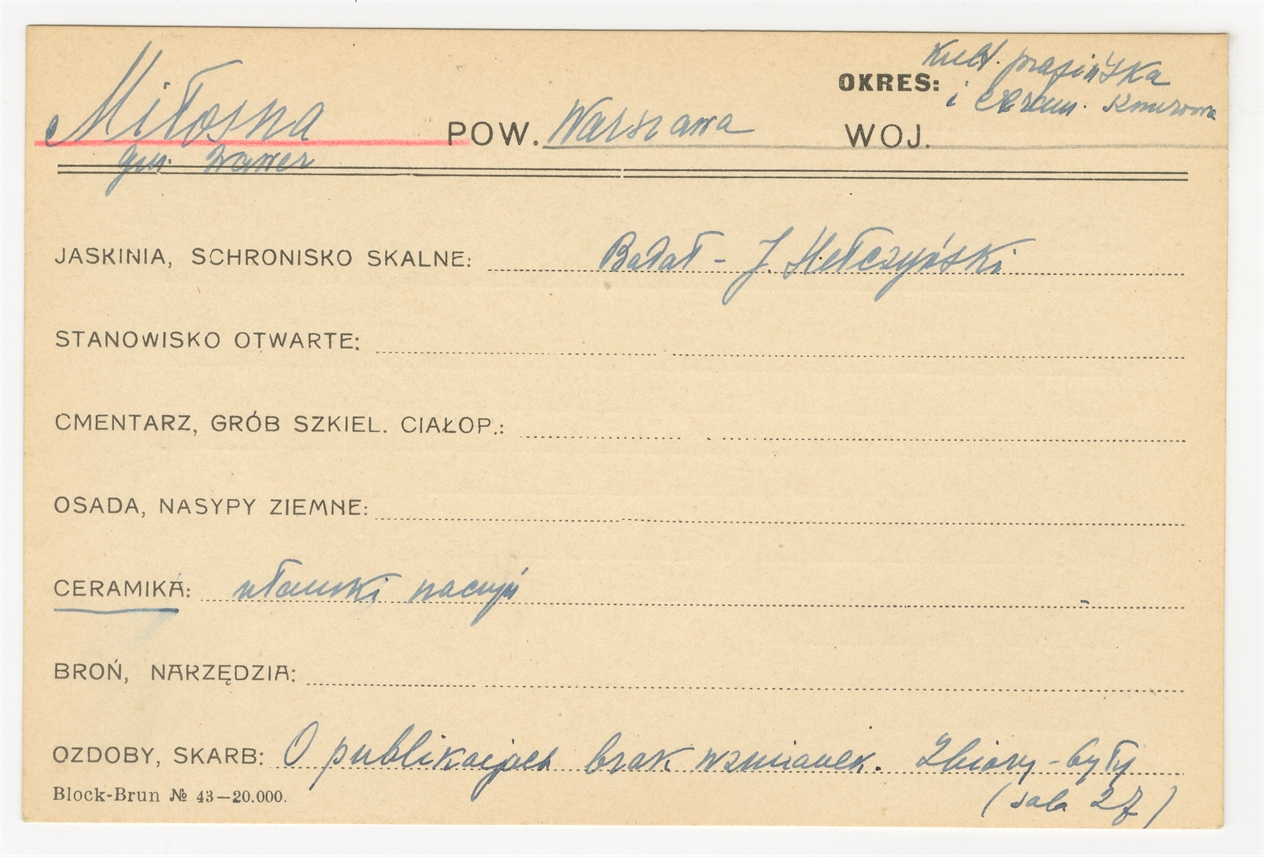 OKRES: Kult. prasińska
i Ceram.
Miłosna POW. Warszawa WOJ.
gm. Wawer
JASKINIA, SCHRONISKO SKALNE: Badał - J
STANOWISKO OTWARTE:
CMENTARZ, GRÓB SZKIEL. CIAŁOP.:
OSADA, NASYPY ZIEMNE:
CERAMIKA: ułamki naczyń
BROŃ, NARZĘDZIA:
OZDOBY, SKARB: O publikacjach brak wzmianek. Zbiory - były
Block-Brun № 43—20.000.
(sala 27)